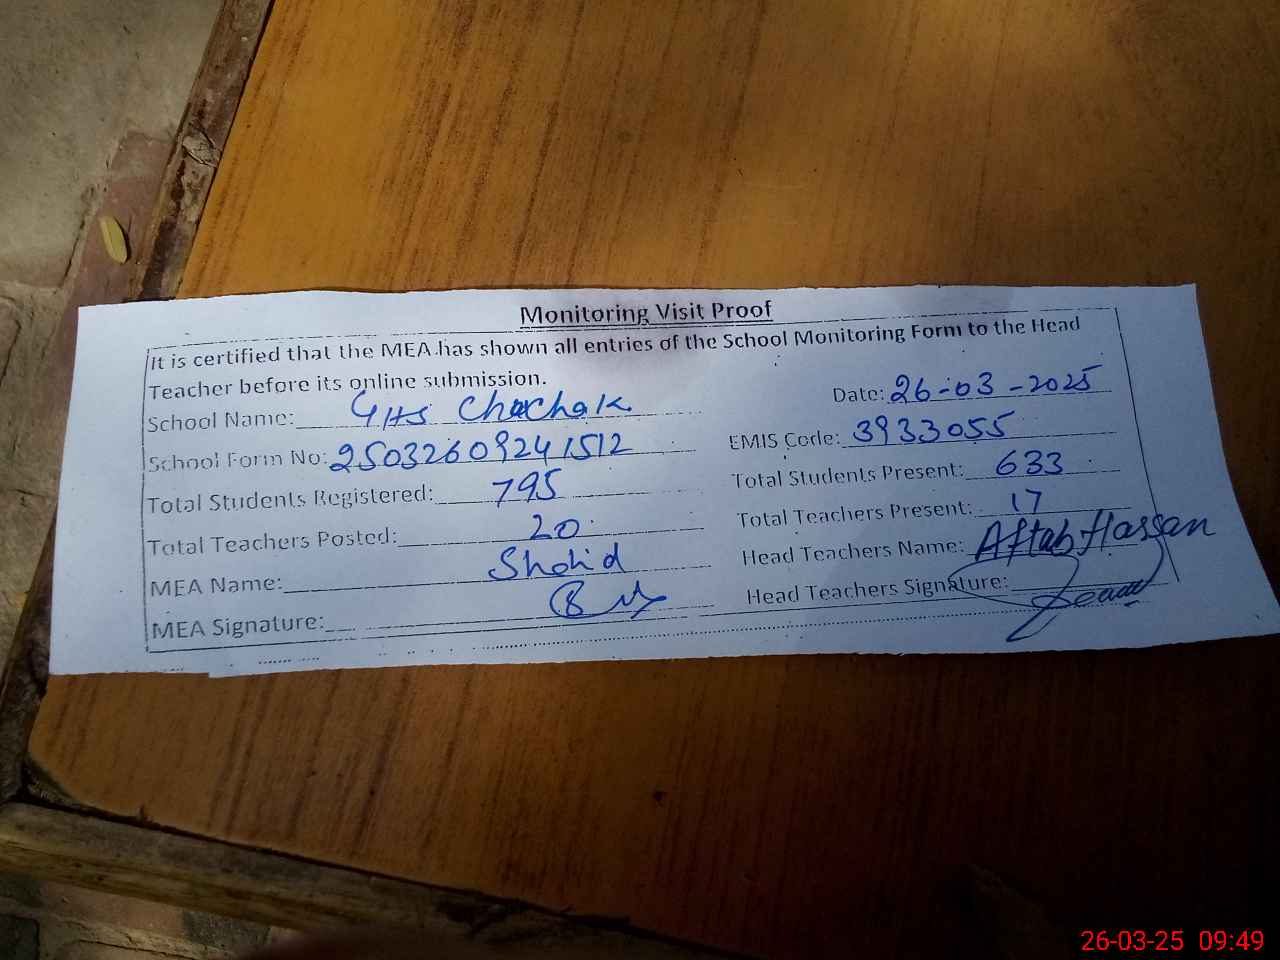 Monitoring Visit Proof
It is certified that the MEA has shown all entries of the School Monitoring Form to the Head
Teacher before its online submission.
Date: 26-03-2025
School Name: GHS Chachak
School Form No: 25032609241512 EMIS Code: 3933055
Total Students Registered: 795 Total Students Present: 633
Total Teachers Posted: 20 Total Teachers Present: 17
MEA Name: Shahid Head Teachers Name: Aftab Hassan
MEA Signature: Head Teachers Signature:
26-03-25 09:49